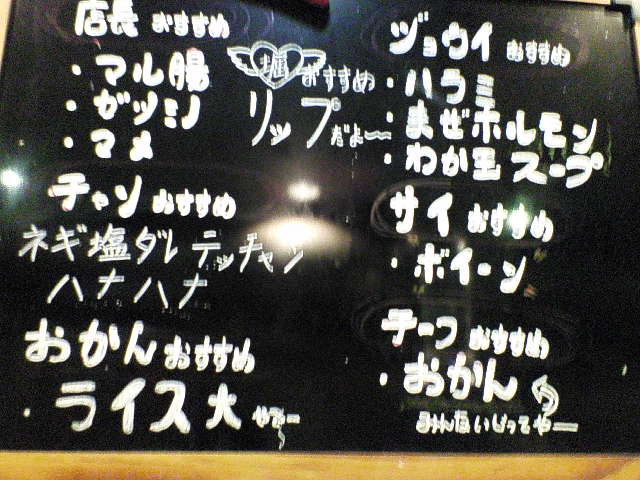 店長 おすすめ
・マル腸
・ガツミノ
・マメ
堀 おすすめ
リップ だよ〜
ヅョウイ おすすめ
・ハラミ
・まぜホルモン
・わか玉スープ
チャソ おすすめ
ネギ塩ダレテッチャン
ハナハナ
サイ おすすめ
・ボイーン
おかん おすすめ
・ライス大 やでー
チーフ おすすめ
・おかん
みんないじってやー